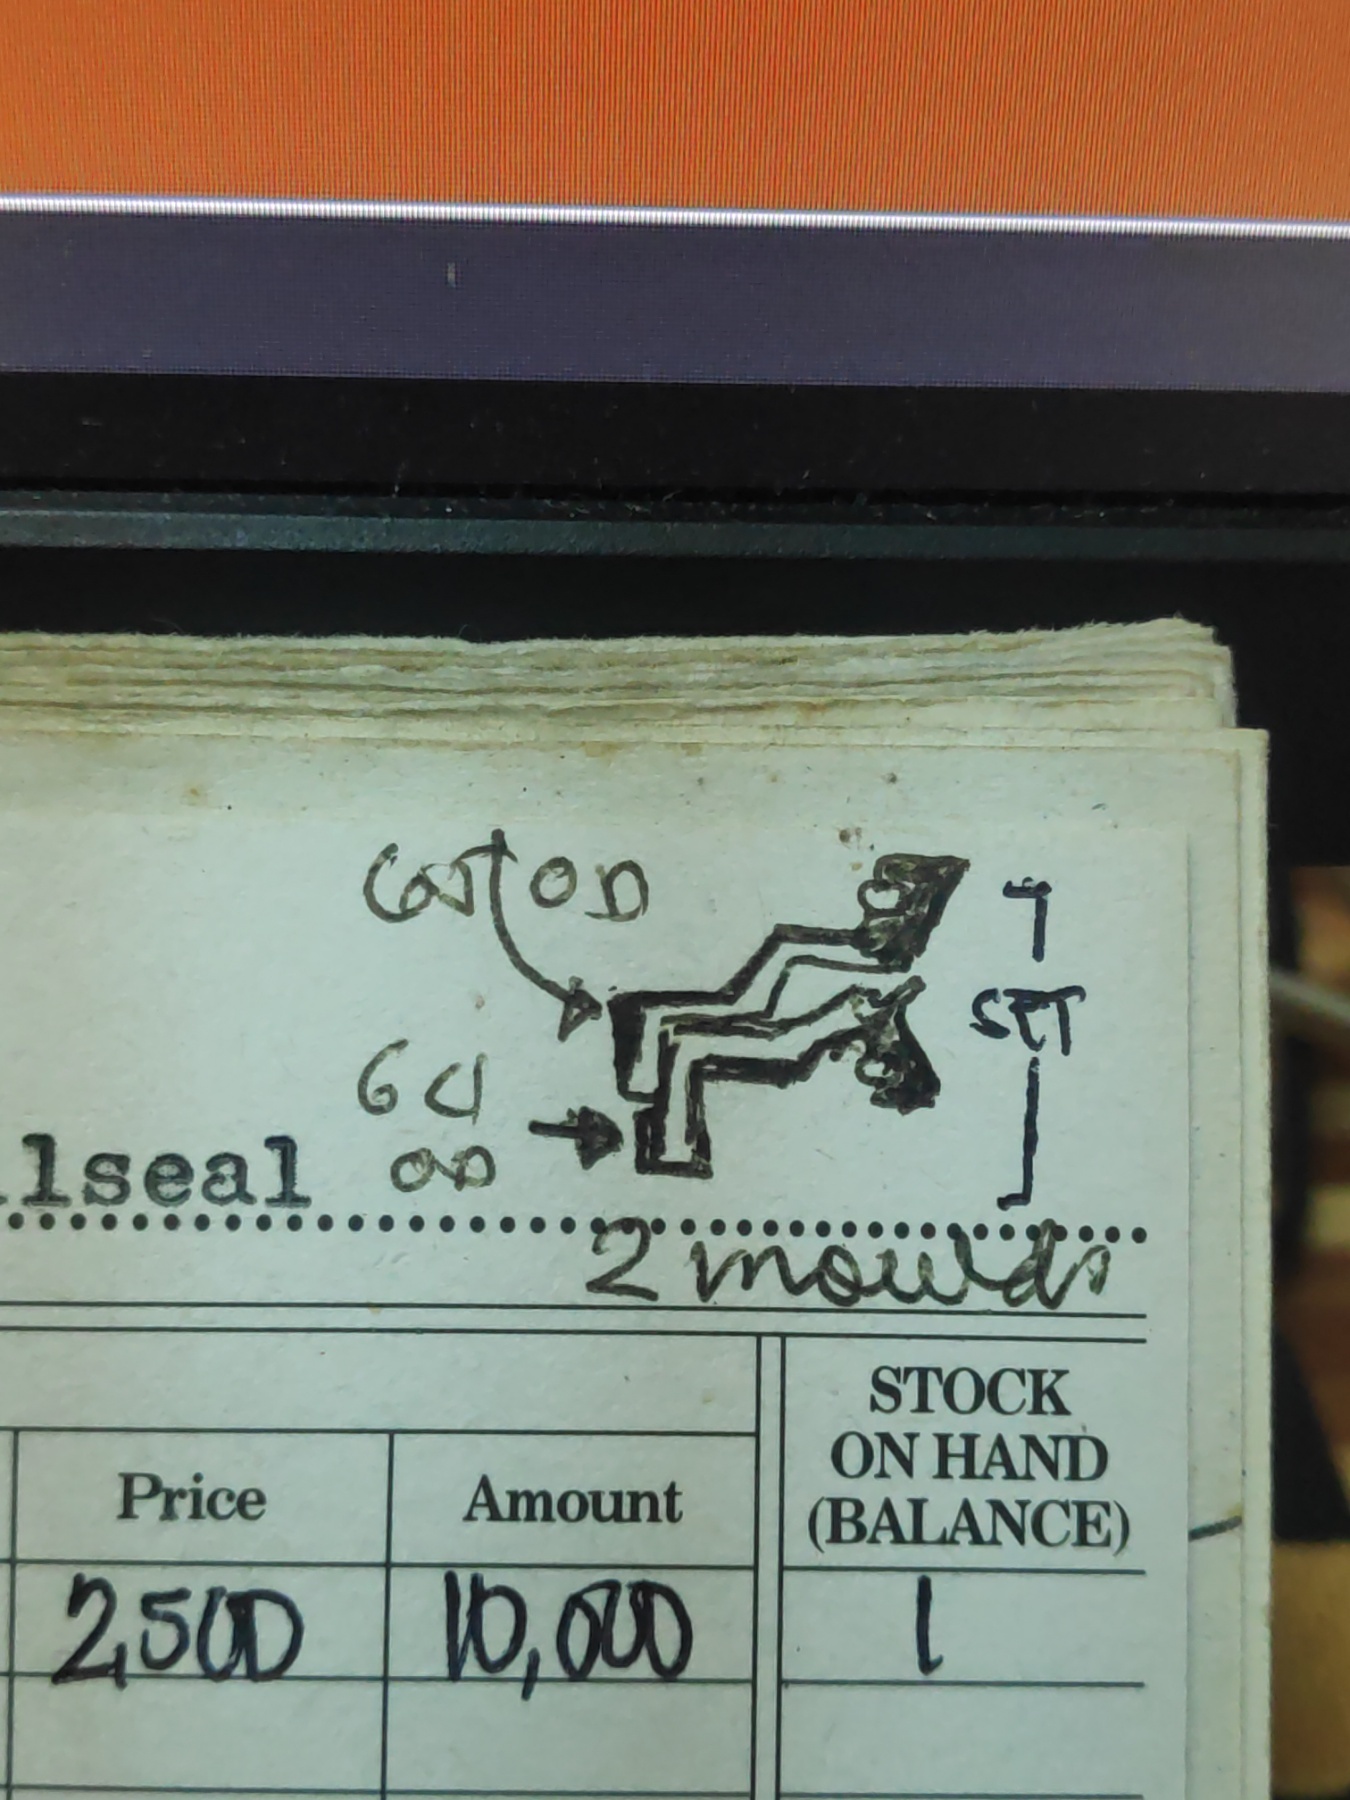 OD
SET
OD
lseal
2 moulds
Price
Amount
STOCK
ON HAND
(BALANCE)
2,500
10,000
1